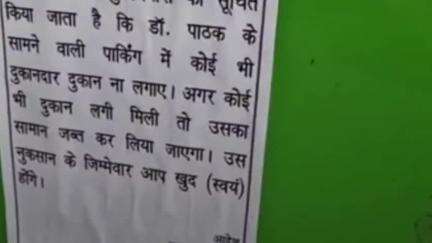 को सूचित
किया जाता है कि डॉ. पाठक के
सामने वाली पार्किंग में कोई भी
दुकानदार दुकान ना लगाए। अगर कोई
भी दुकान लगी मिली तो उसका
सामान जब्त कर लिया जाएगा। उस
नुकसान के जिम्मेवार आप खुद (स्वयं)
होंगे।